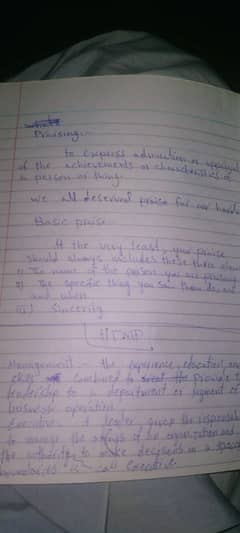 Praising:-
to express admiration or approval
of the achievements or characteristics of
a person or thing.
we all deserved praise for our
Basic praise
At the very least, your praise
should always includes these three
i) The name of the person you are praising
ii) The specific thing you saw them do,
and when
iii) Sincerity
Management - the experience, education, and
skills combined to provide
leadership to a department or segment of
business operation
Executive: A leader given the
to manage the of an organization and
the authority to make decisions in a
boundaries is call Executive.